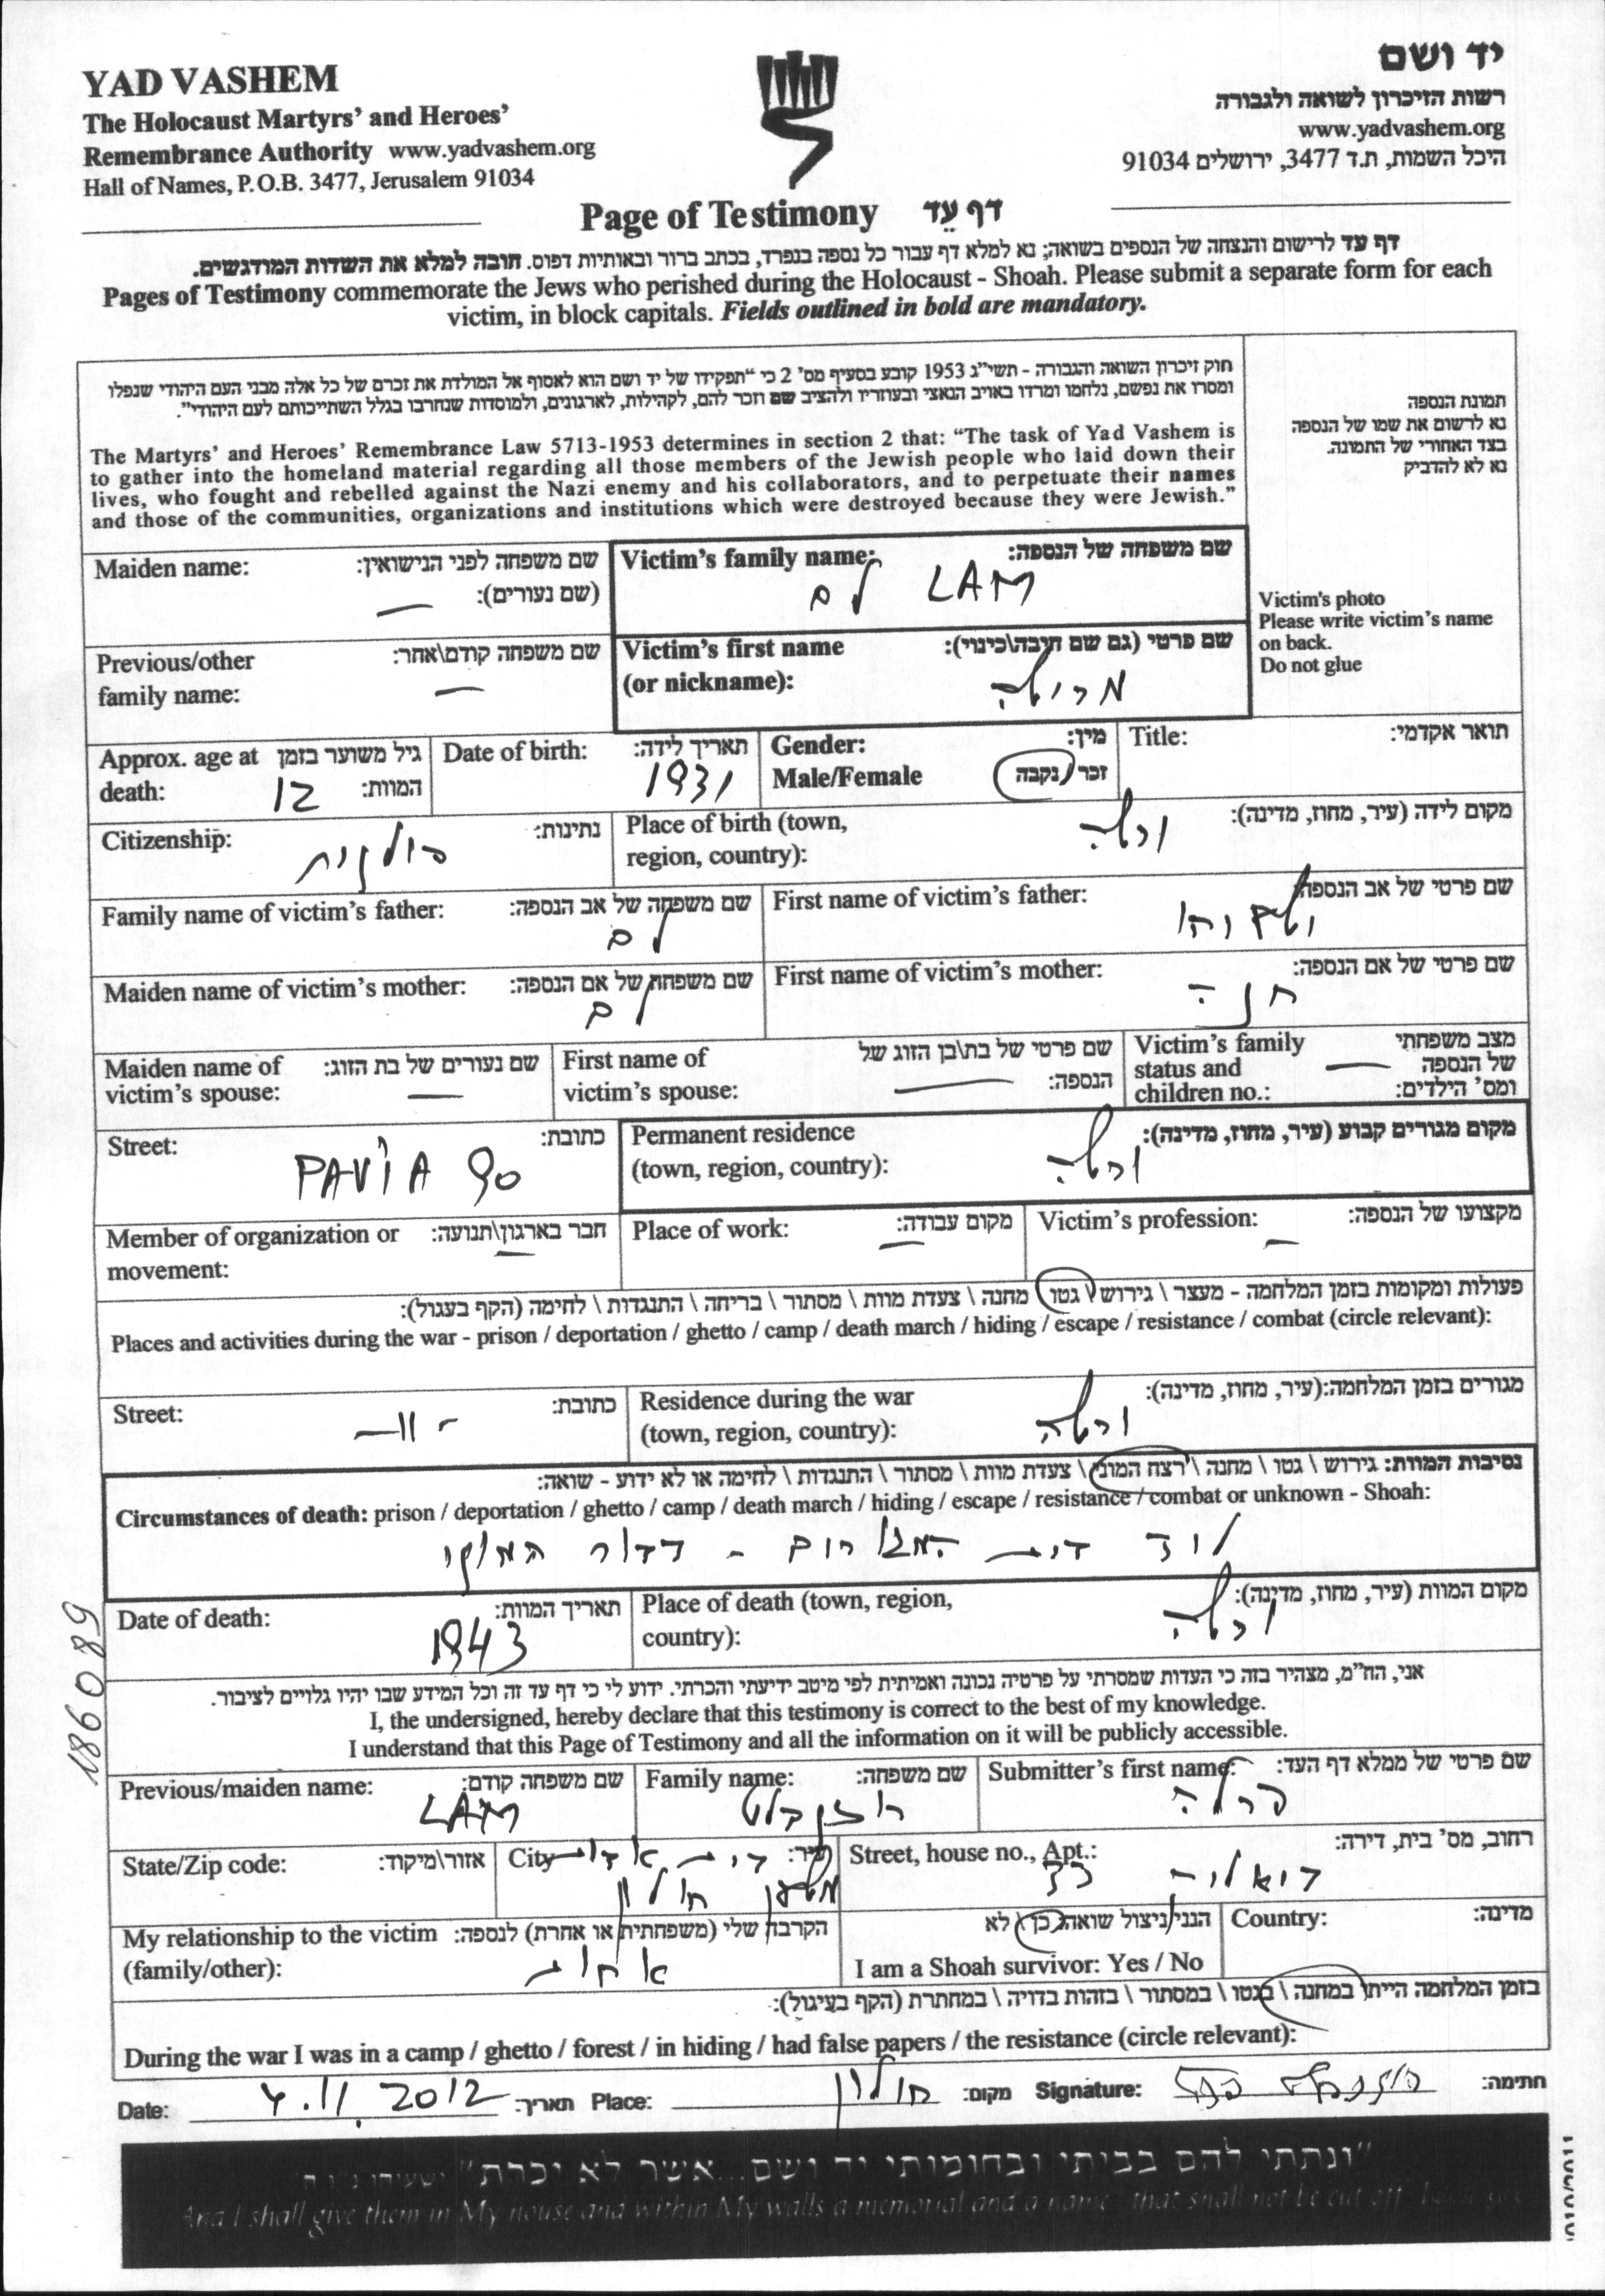 YAD VASHEM
The Holocaust Martyrs' and Heroes'
Remembrance Authority www.yadvashem.org
Hall of Names, P.O.B. 3477, Jerusalem 91034
יד ושם
רשות הזיכרון לשואה ולגבורה
www.yadvashem.org
היכל השמות, ת.ד 3477, ירושלים 91034
Page of Testimony דף עֵד
דף עד לרישום והנצחה של הנספים בשואה; נא למלא דף עבור כל נספה בנפרד, בכתב ברור ובאותיות דפוס. חובה למלא את השדות המודגשים.
Pages of Testimony commemorate the Jews who perished during the Holocaust - Shoah. Please submit a separate form for each
victim, in block capitals. Fields outlined in bold are mandatory.
חוק זיכרון השואה והגבורה - תשי"ג 1953 קובע בסעיף מס' 2 כי "תפקידו של יד ושם הוא לאסוף אל המולדת את זכרם של כל אלה מבני העם היהודי שנפלו
ומסרו את נפשם, נלחמו ומרדו באויב הנאצי ובעוזריו ולהציב שם וזכר להם, לקהילות, לארגונים, ולמוסדות שנחרבו בגלל השתייכותם לעם היהודי".
The Martyrs' and Heroes' Remembrance Law 5713-1953 determines in section 2 that: "The task of Yad Vashem is
to gather into the homeland material regarding all those members of the Jewish people who laid down their
lives, who fought and rebelled against the Nazi enemy and his collaborators, and to perpetuate their names
and those of the communities, organizations and institutions which were destroyed because they were Jewish."
תמונת הנספה
נא לרשום את שמו של הנספה
בצד האחורי של התמונה.
נא לא להדביק
Victim's photo
Please write victim's name
on back.
Do not glue
Maiden name: שם משפחה לפני הנישואין:
(שם נעורים): —
Victim's family name: שם משפחה של הנספה:
לם LAM
Previous/other שם משפחה קודם\אחר:
family name: —
Victim's first name שם פרטי (גם שם חיבה\כינוי):
(or nickname): מרישה
Approx. age at גיל משוער בזמן
death: 12 המוות:
Date of birth: תאריך לידה:
1931
Gender: מין:
Male/Female זכר / נקבה
Title: תואר אקדמי:
Citizenship: נתינות:
פולנית
Place of birth (town, מקום לידה (עיר, מחוז, מדינה):
region, country): ורשה
Family name of victim's father: שם משפחה של אב הנספה:
לם
First name of victim's father: שם פרטי של אב הנספה:
Maiden name of victim's mother: שם משפחת של אם הנספה:
לם
First name of victim's mother: שם פרטי של אם הנספה:
חנה
Maiden name of שם נעורים של בת הזוג:
victim's spouse: —
First name of שם פרטי של בת\בן הזוג של
victim's spouse: — הנספה:
Victim's family מצב משפחתי
status and — של הנספה
children no.: ומס' הילדים:
Street: כתובת:
PAVIA 90
Permanent residence מקום מגורים קבוע (עיר, מחוז, מדינה):
(town, region, country): ורשה
Member of organization or חבר בארגון\תנועה:
movement: —
Place of work: מקום עבודה:
—
Victim's profession: מקצועו של הנספה:
—
פעולות ומקומות בזמן המלחמה - מעצר \ גירוש \ גטו \ מחנה \ צעדת מוות \ מסתור \ בריחה \ התנגדות \ לחימה (הקף בעגול):
Places and activities during the war - prison / deportation / ghetto / camp / death march / hiding / escape / resistance / combat (circle relevant):
Street: כתובת:
—״-
Residence during the war מגורים בזמן המלחמה:(עיר, מחוז, מדינה):
(town, region, country): ורשה
נסיבות המוות: גירוש \ גטו \ מחנה \ רצח המוני \ צעדת מוות \ מסתור \ התנגדות \ לחימה או לא ידוע - שואה:
Circumstances of death: prison / deportation / ghetto / camp / death march / hiding / escape / resistance / combat or unknown - Shoah:
ליד בית
Date of death: תאריך המוות:
1943
Place of death (town, region, מקום המוות (עיר, מחוז, מדינה):
country): ורשה
אני, הח"מ, מצהיר בזה כי העדות שמסרתי על פרטיה נכונה ואמיתית לפי מיטב ידיעתי והכרתי. ידוע לי כי דף עד זה וכל המידע שבו יהיו גלויים לציבור.
I, the undersigned, hereby declare that this testimony is correct to the best of my knowledge.
I understand that this Page of Testimony and all the information on it will be publicly accessible.
Previous/maiden name: שם משפחה קודם:
LAM
Family name: שם משפחה:
רוזנבלט
Submitter's first name: שם פרטי של ממלא דף העד:
פרלה
State/Zip code: אזור\מיקוד:
City עיר: בית אבות
משען חולון
Street, house no., Apt.: רחוב, מס' בית, דירה:
My relationship to the victim הקרבה שלי (משפחתית או אחרת) לנספה:
(family/other): אחות
הנני ניצול שואה כן \ לא
I am a Shoah survivor: Yes / No
Country: מדינה:
בזמן המלחמה הייתי במחנה \ בגטו \ במסתור \ בזהות בדויה \ במחתרת (הקף בעיגול):
During the war I was in a camp / ghetto / forest / in hiding / had false papers / the resistance (circle relevant):
Date: 4.11.2012 תאריך: Place: חולון מקום: Signature: רוזנבלט פרל חתימה:
"ונתתי להם בביתי ובחומותי יד ושם...אשר לא יכרת" ישעיהו נ"ו ה'
And I shall give them in My house and within My walls a memorial and a name that shall not be cut off
186089